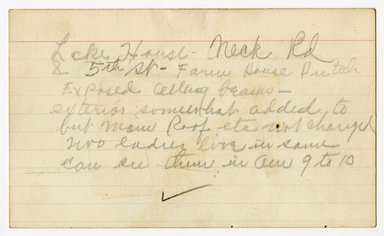 Lcke House - Neck Rd
& 5th St - Farm House Dutch
Exposed ceiling beams -
exterior somewhat added to
but Main Roof etc not changed
Two ladies live in same
can see them in Am 9 to 10